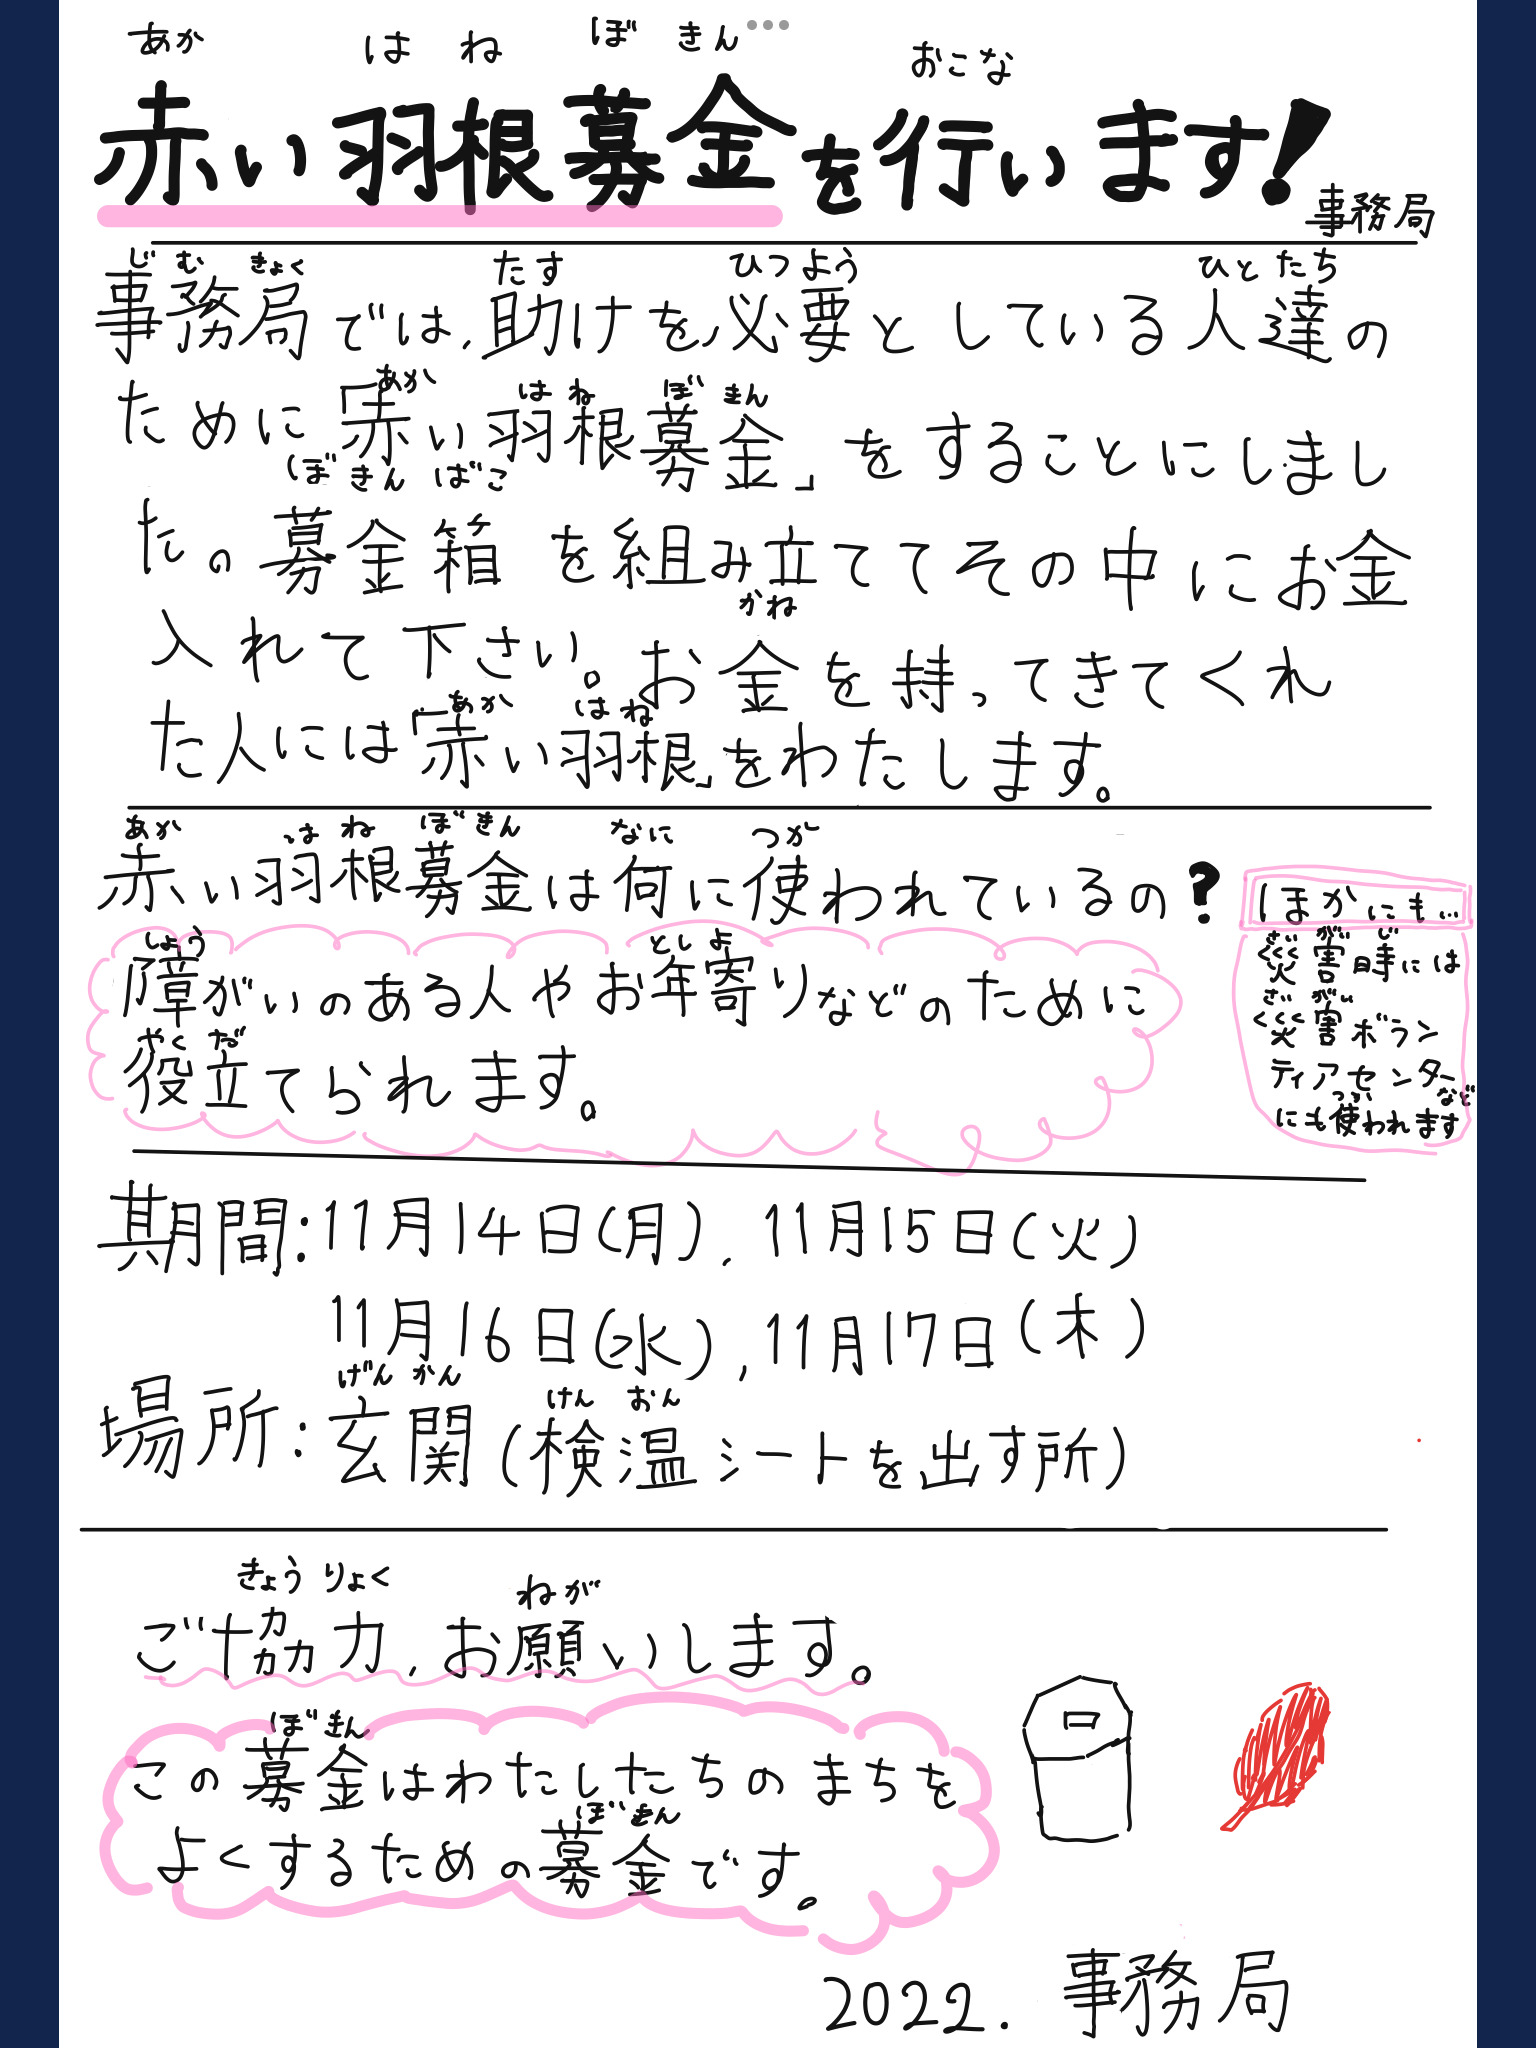 あか はね ぼきん おこな
赤い羽根募金を行います!
事務局
じむきょく たす ひつよう ひとたち
事務局では、助けを必要としている人達の
あか はね ぼきん
ために「赤い羽根募金」をすることにしまし
ぼきんばこ
た。募金箱を組み立ててその中にお金
かね
入れて下さい。お金を持ってきてくれ
あか はね
た人には「赤い羽根」をわたします。
あか はね ぼきん なに つか
赤い羽根募金は何に使われているの?
しょう としよ
障がいのあるある人やお年寄りなどのために
やくだ
役立てられます。
ほかにも…
さいがいじ
災害時には
さいがい
災害ボラン
ティアセンターなど
つか
にも使われます
期間:11月14日(月)、11月15日(火)
11月16日(水)、11月17日(木)
げんかん けんおん
場所:玄関(検温シートを出す所)
きょうりょく ねが
ご協力、お願いします。
ぼきん
この募金はわたしたちのまちを
ぼきん
よくするための募金です。
2022. 事務局